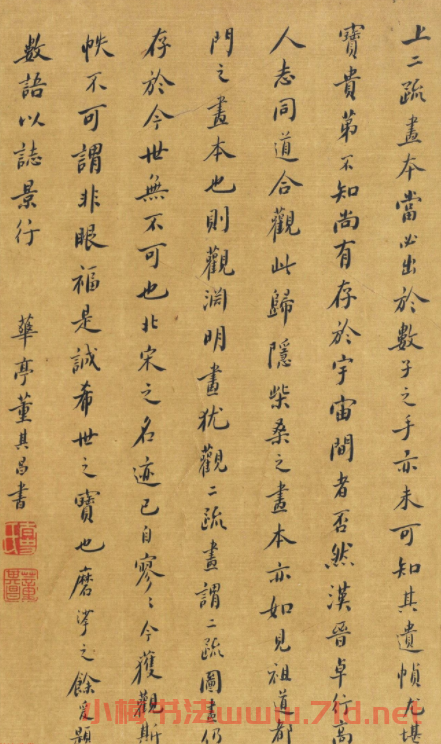 上二疏畫本當必出於數子之手亦未可知其遺幀尤堪
寶貴第不知尚有存於宇宙間者否然漢晉卓行高
人志同道合觀此歸隱柴桑之畫本亦如見祖道都
門之畫本也則觀淵明畫猶觀二疏畫謂二疏圖畫仍
存於今世無不可也北宋之名迹已自寥〻今獲觀斯
帙不可謂非眼福是誠希世之寶也磨挲之餘爰題
數語以誌景行
華亭董其昌書
小楷书法www.71d.net